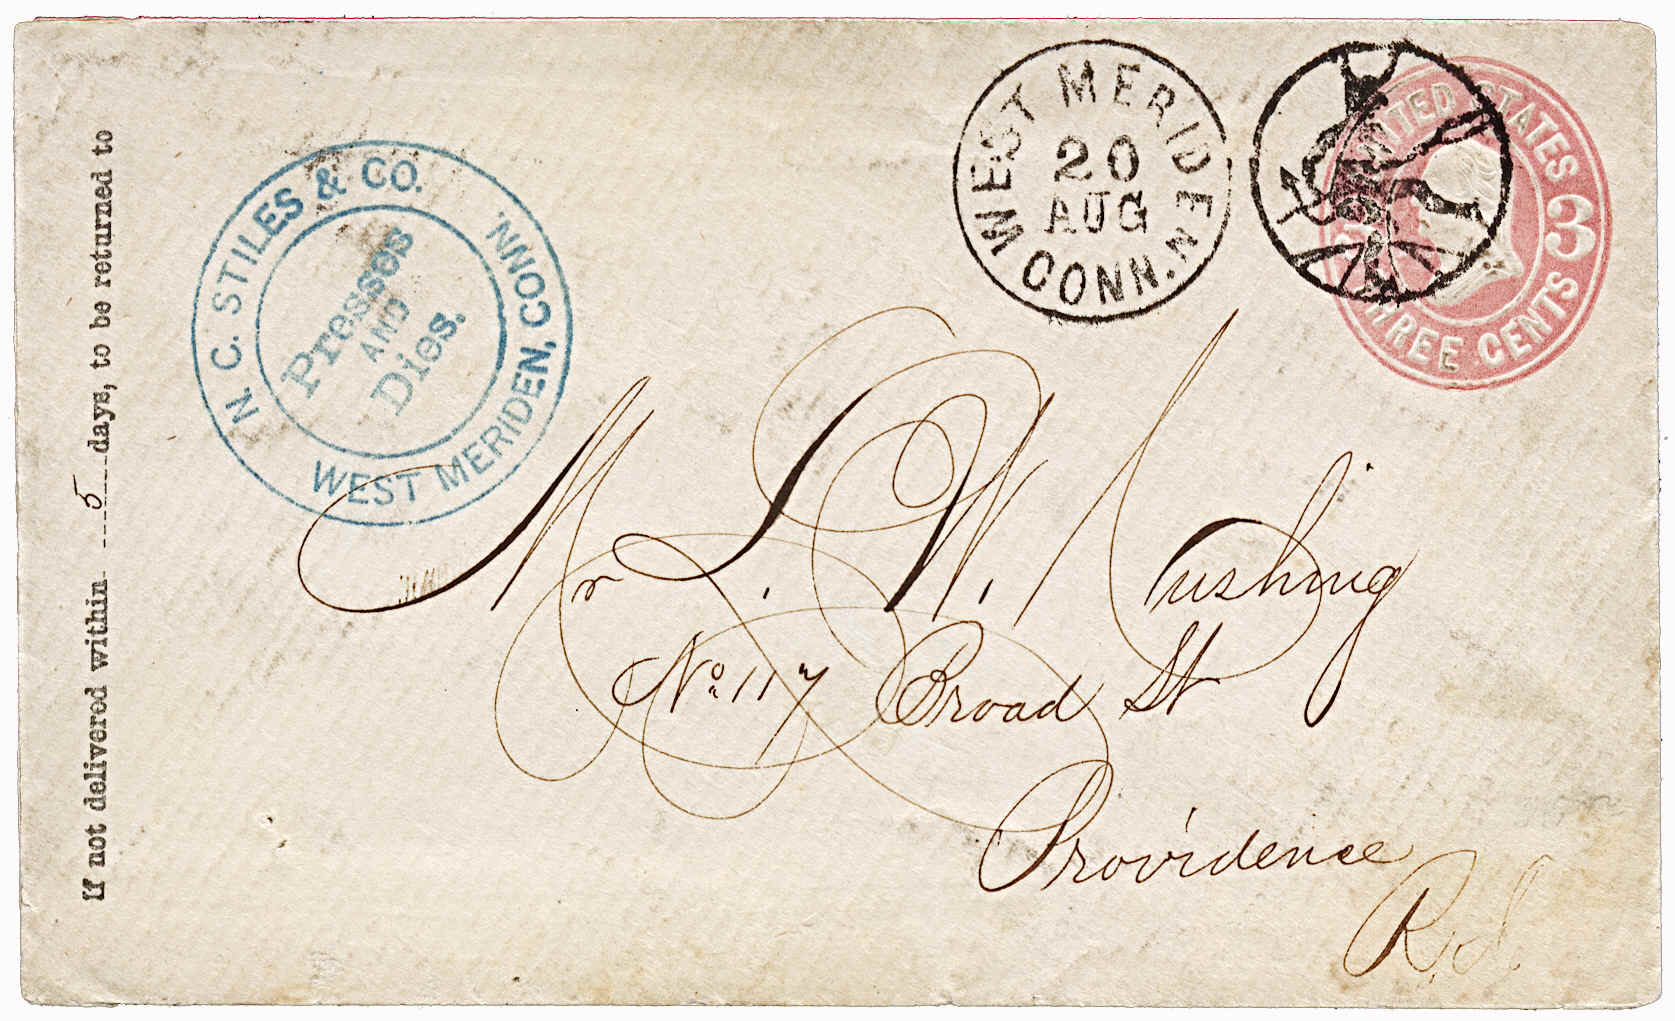 If not delivered within 5 days, to be returned to
N. C. STILES & CO.
WEST MERIDEN, CONN.
Presses
AND
Dies.
WEST MERIDEN
20
AUG
CONN.
UNITED STATES
3
THREE CENTS
Mr L. W. Cushing
No 117 Broad St
Providence
R.I.